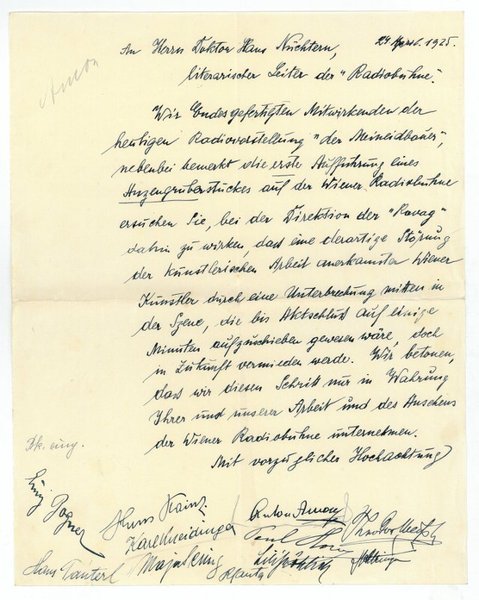 An Herrn Doktor Hans Nüchtern, 24. April 1925.
literarischer Leiter der "Radiobühne".
Amon
Wir Endesgefertigten Mitwirkenden der
heutigen Radiovorstellung "der Meineidbauer",
nebenbei bemerkt die erste Aufführung eines
Anzengruberstückes auf der Wiener Radiobühne
ersuchen Sie, bei der Direktion der "Ravag"
dahin zu wirken, dass eine derartige Störung
der künstlerischen Arbeit anerkannter Wiener
Künstler durch eine Unterbrechung mitten in
der Szene, die bis Aktschluß auf einige
Minuten aufzuschieben gewesen wäre, doch
in Zukunft vermieden werde. Wir betonen,
dass wir diesen Schritt nur in Wahrung
Ihrer und unserer Arbeit und des Ansehens
der Wiener Radiobühne unternehmen.
Mit vorzüglicher Hochachtung
Anton Amon
Hans
Karl
Maja
Hans